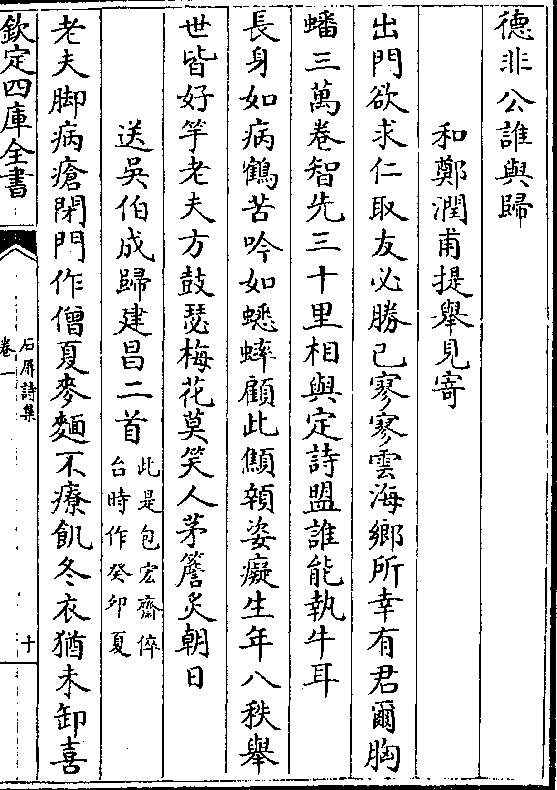 德非公誰與歸
和鄭潤甫提舉見寄
出門欲求仁取友必勝己寥寥雲海鄉所幸有君爾胸
蟠三萬卷智先三十里相與定詩盟誰能執牛耳
長身如病鶴苦吟如蟋蟀顧此顦顇姿癡生年八秩舉
世皆好竽老夫方鼓瑟梅花莫笑人茅簷炙朝日
送吳伯成歸建昌二首此是包宏齋倅
台時作癸卯夏
老夫脚病瘡閉門作僧夏麥麵不療飢冬衣猶未卸喜
欽定四庫全書
石屏詩集
卷一
十